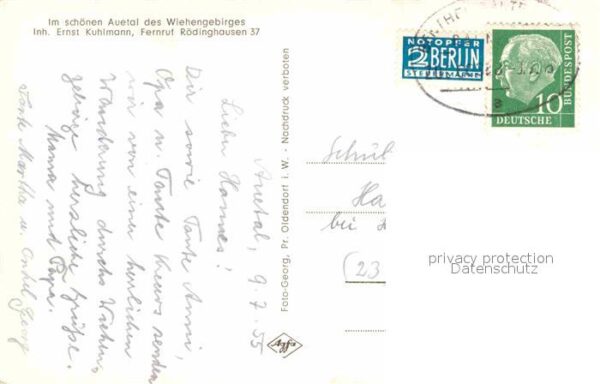 Im schönen Auetal des Wiehengebirges
Inh. Ernst Kuhlmann, Fernruf Rödinghausen 37
Auetal, 9.7.55
Liebe Hannes!
Dir sowie Tante Anni,
Opa u. Tante senden
wir von einer herrlichen
Wanderung durchs Wiehen-
gebirge herzliche Grüße.
Mama und Papa.
Tante Martha u. Onkel Georg
Foto-Georg, Pr. Oldendorf i. W. · Nachdruck verboten
Agfa
NOTOPFER
2 BERLIN
STEUERMARKE
10
DEUTSCHE
BUNDESPOST
Schül
Ha
bei
(23
privacy protection
Datenschutz